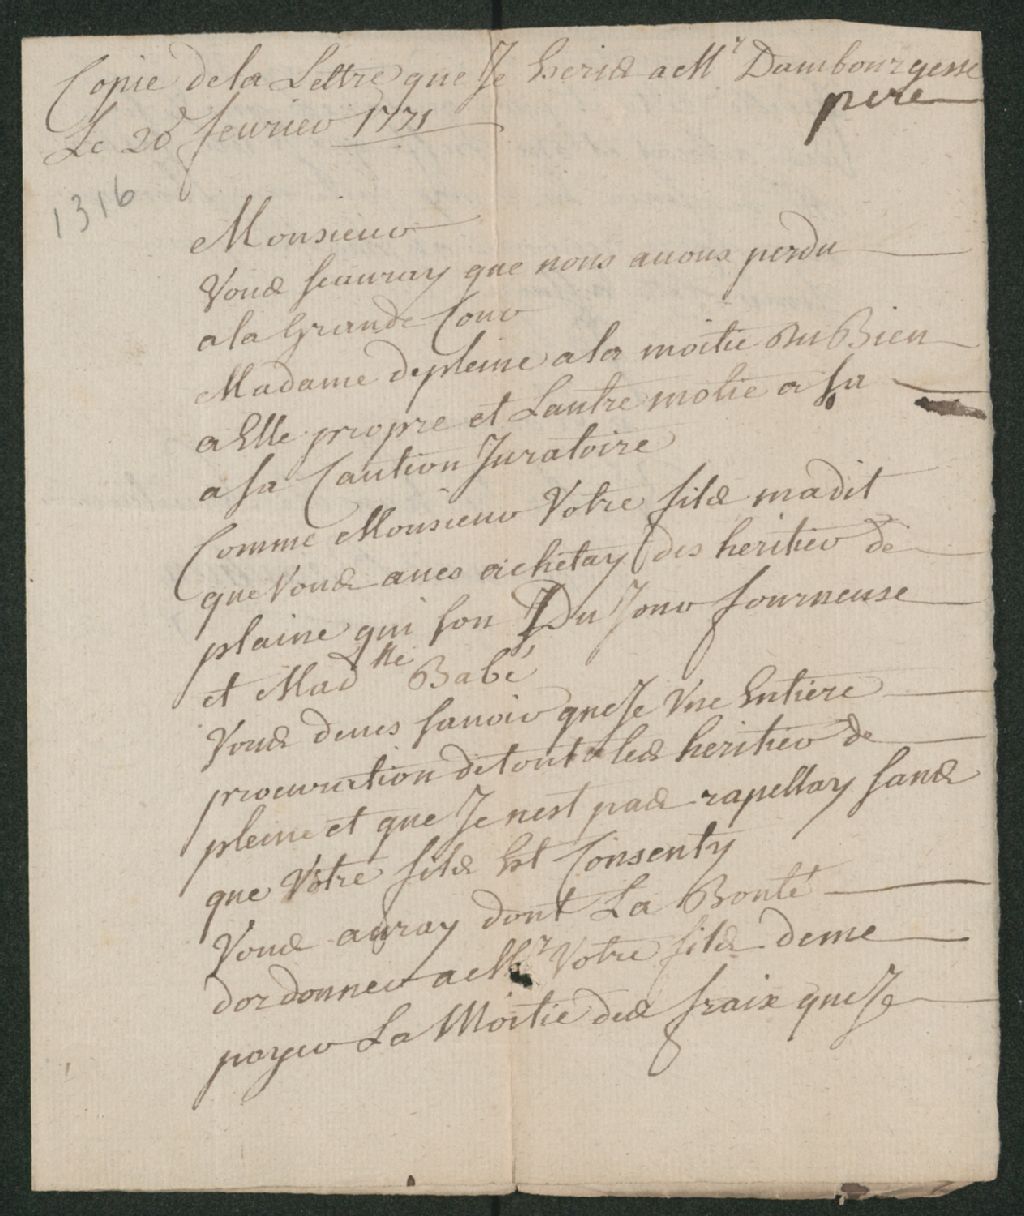 Copie de la Lettre que Je Écris a Mr Dambourgesse
pere
Le 20e fevrier 1771
1316
Monsieur
Vous scauray que nous auons perdu
a la Grande Cour
Madame depleine a la moitie du Bien
a Elle propre et Lautre motie a sa
a sa Caution Juratoire
Comme Monsieur Votre fils madit
que Vous aues achetay des heritier de
plaine qui son Du Jour fourneuse
et Madlle Babé
Vous deues sauoir que Je Une Entiere
procuration de touts les heritier de
pleine et que Je nest pas rapellay sans
que Votre fils Est Consenty
Vous auray dont La Bonté
dordonner a Mr Votre fils deme
payer La Moitie des fraix que Je